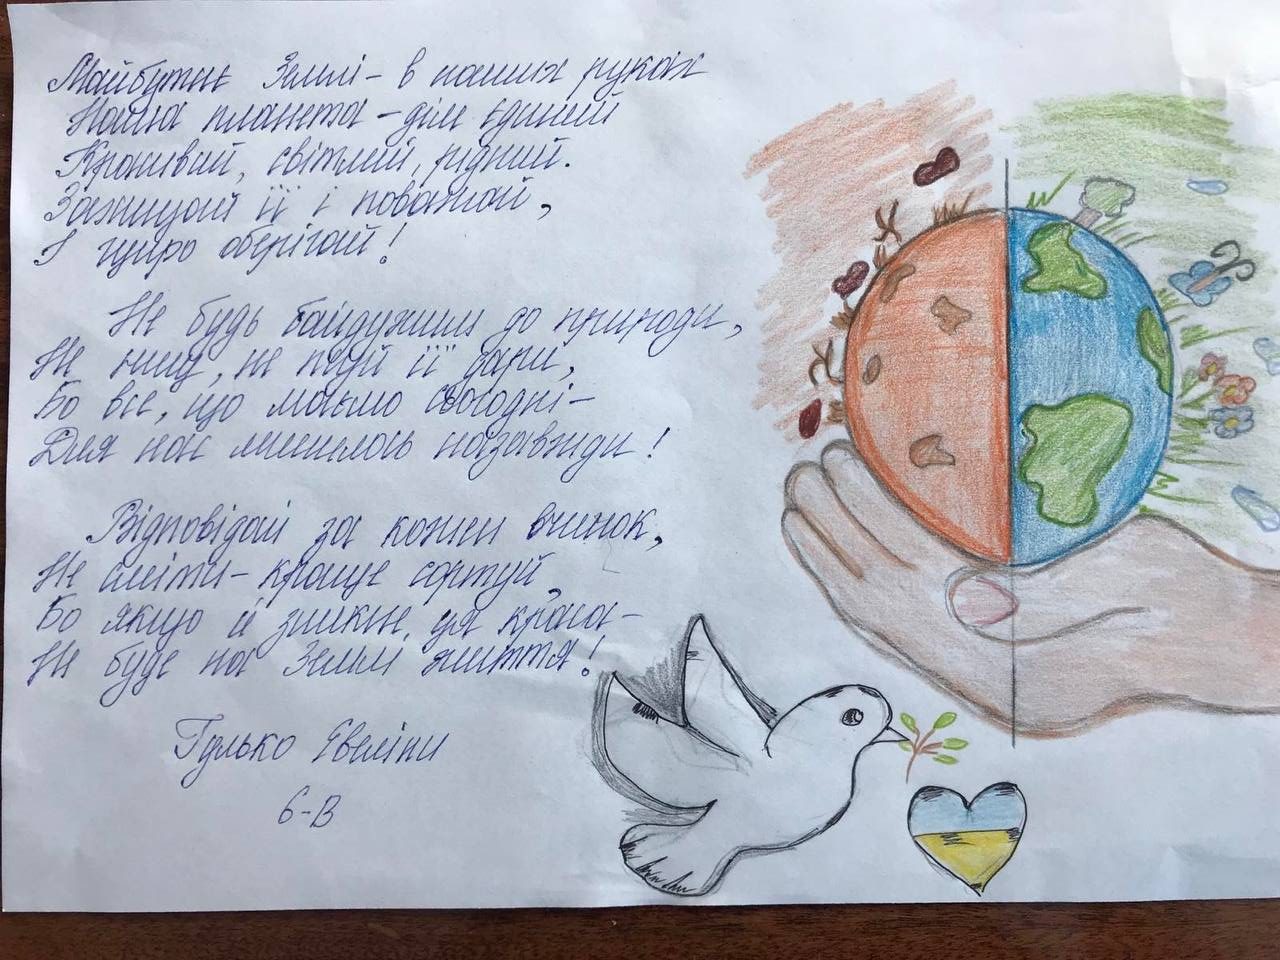 Майбутнє Землі - в наших руках
Наша планета - дім єдиний
Красивий, світлий, рідний.
Захищай її і поважай,
І щиро оберігай!
Не будь байдужим до природи,
Не нищ, не псуй її дари,
Бо все, що маємо сьогодні -
Для нас лишилось назавжди!
Відповідай за кожен вчинок,
Не сміти - краще сортуй,
Бо якщо й зникне ця краса -
Не буде на Землі життя!
Гулько Евеліни
6-В